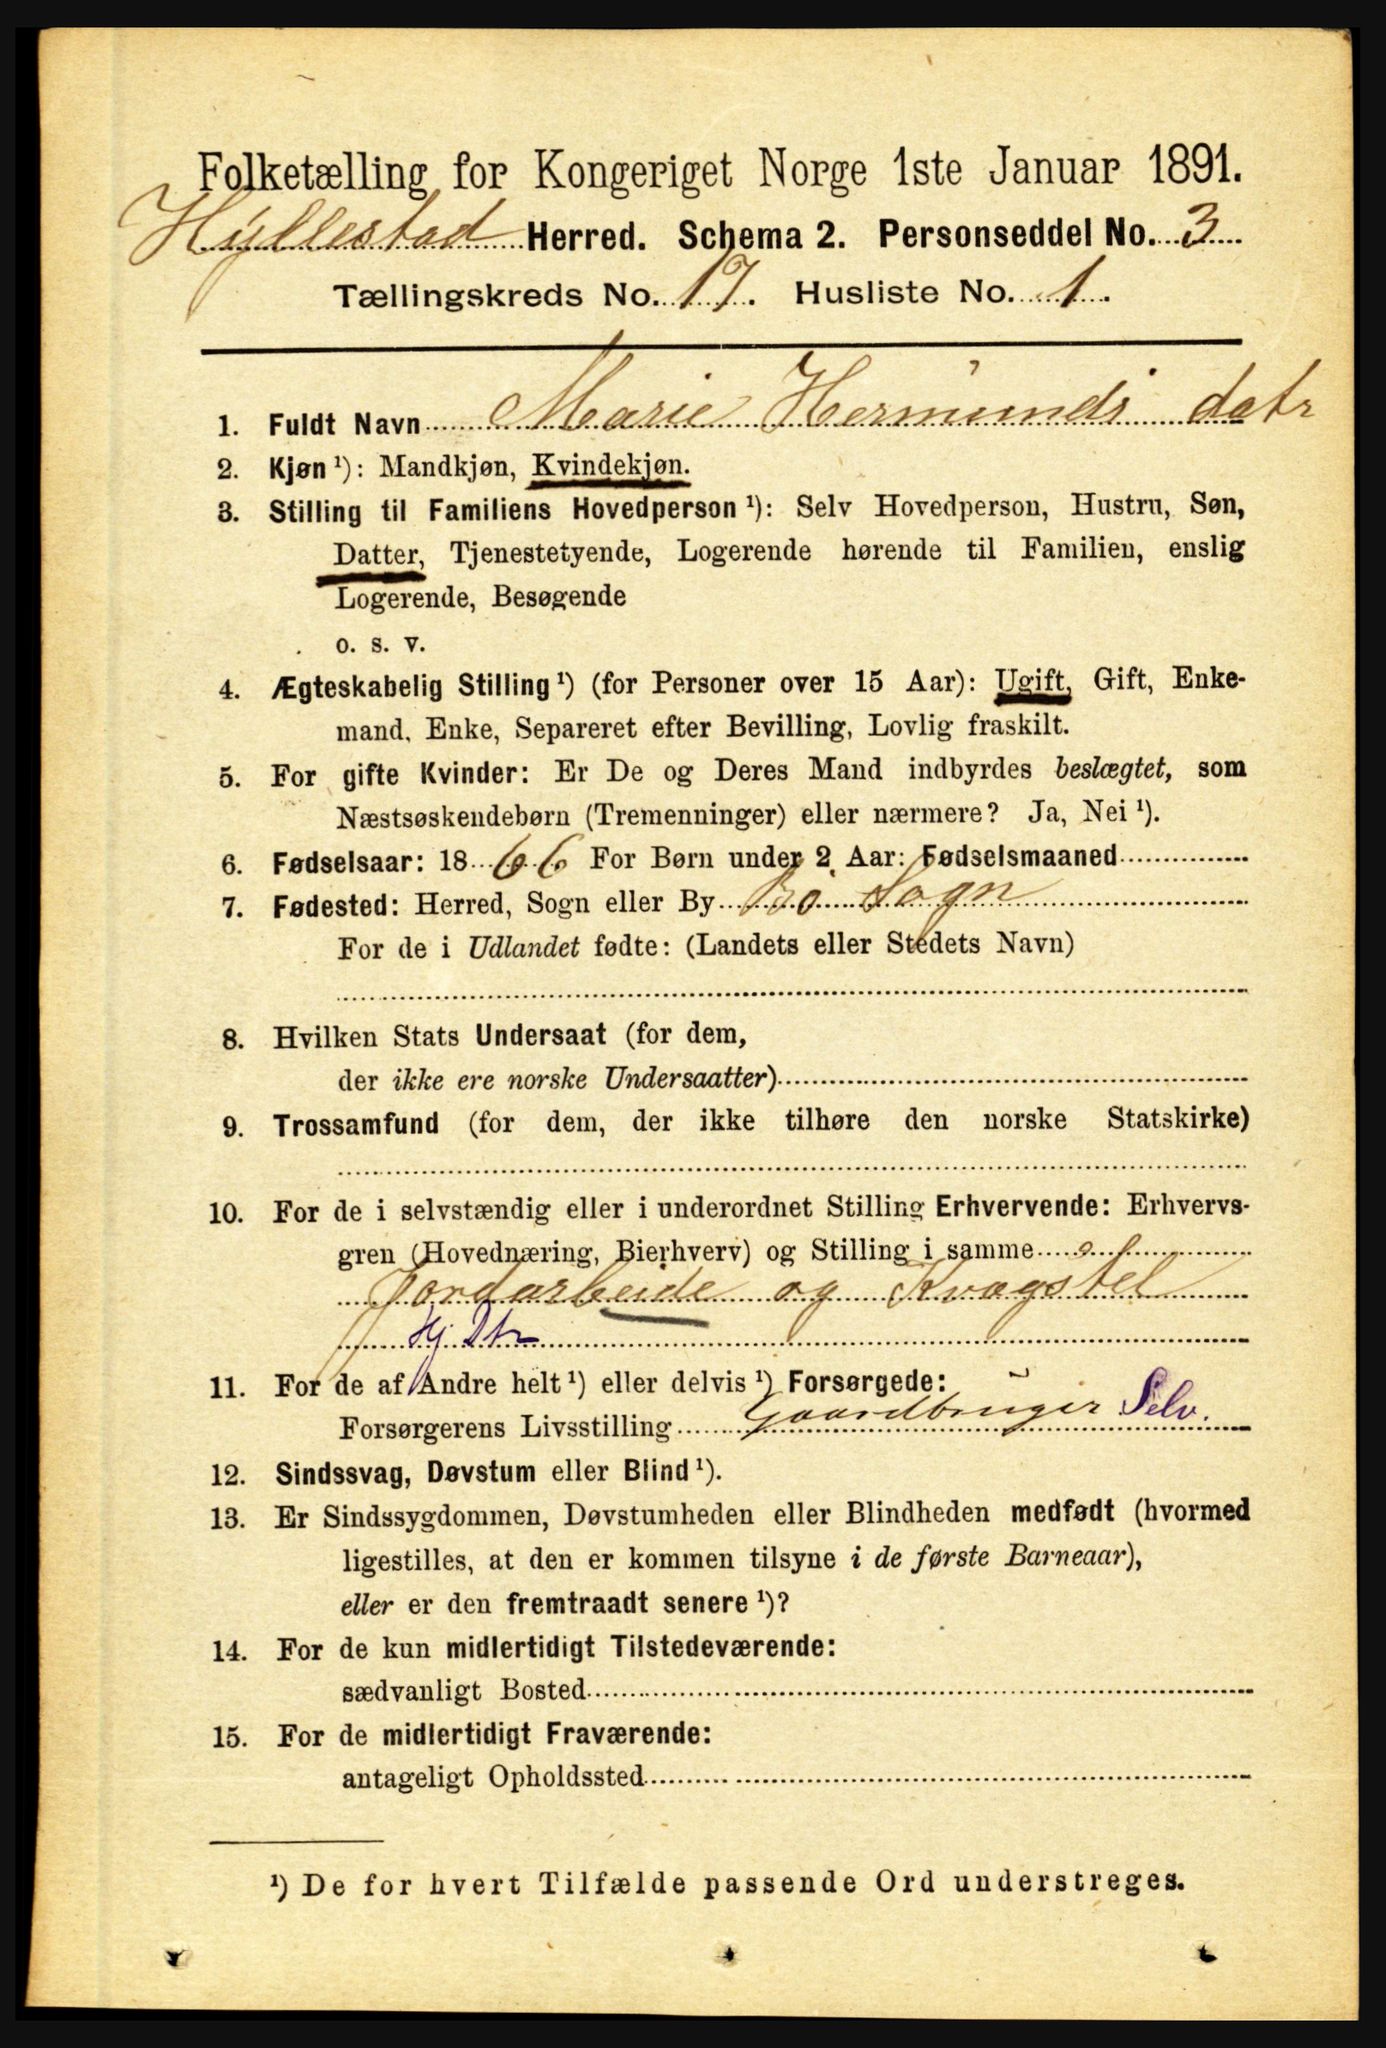 Folketælling for Kongeriget Norge 1ste Januar 1891.
Hyllestad Herred. Schema 2. Personseddel No. 3
Tællingskreds No. 17. Husliste No. 1.
1. Fuldt Navn Marie Hermunds datr
2. Kjøn ¹): Mandkjøn, Kvindekjøn.
3. Stilling til Familiens Hovedperson ¹): Selv Hovedperson, Hustru, Søn,
Datter, Tjenestetyende, Logerende hørende til Familien, enslig
Logerende, Besøgende
o. s. v.
4. Ægteskabelig Stilling ¹) (for Personer over 15 Aar): Ugift, Gift, Enke-
mand, Enke, Separeret efter Bevilling, Lovlig fraskilt.
5. For gifte Kvinder: Er De og Deres Mand indbyrdes beslægtet, som
Næstsøskendebørn (Tremenninger) eller nærmere? Ja, Nei ¹).
6. Fødselsaar: 1866 For Børn under 2 Aar: Fødselsmaaned
7. Fødested: Herred, Sogn eller By Bø Sogn
For de i Udlandet fødte: (Landets eller Stedets Navn)
8. Hvilken Stats Undersaat (for dem,
der ikke ere norske Undersaatter)
9. Trossamfund (for dem, der ikke tilhøre den norske Statskirke)
10. For de i selvstændig eller i underordnet Stilling Erhvervende: Erhvervs-
gren (Hovednæring, Bierhverv) og Stilling i samme
Jordarbeide og Kvægstel
Hj Dtr
11. For de af Andre helt ¹) eller delvis ¹) Forsørgede:
Forsørgerens Livsstilling Gaardbruger Selv.
12. Sindssvag, Døvstum eller Blind ¹).
13. Er Sindssygdommen, Døvstumheden eller Blindheden medfødt (hvormed
ligestilles, at den er kommen tilsyne i de første Barneaar),
eller er den fremtraadt senere ¹)?
14. For de kun midlertidigt Tilstedeværende:
sædvanligt Bosted
15. For de midlertidigt Fraværende:
antageligt Opholdssted
¹) De for hvert Tilfælde passende Ord understreges.